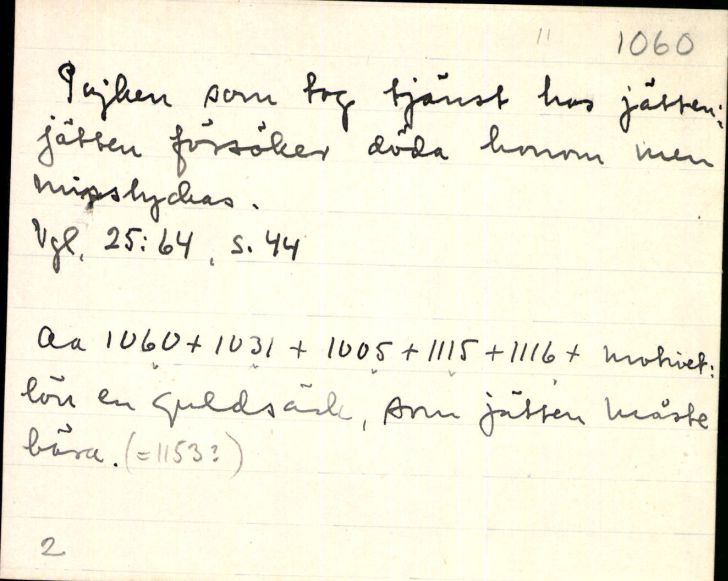 " 1060
Pojken som tog tjänst hos jätten;
jätten försöker döda honom men
misslyckas.
Vgl. 25:64, s. 44
Aa 1060 + 1031 + 1005 + 1115 + 1116 + motivet:
lön en guldsäck, som jätten måste
bära. (=1153?)
2